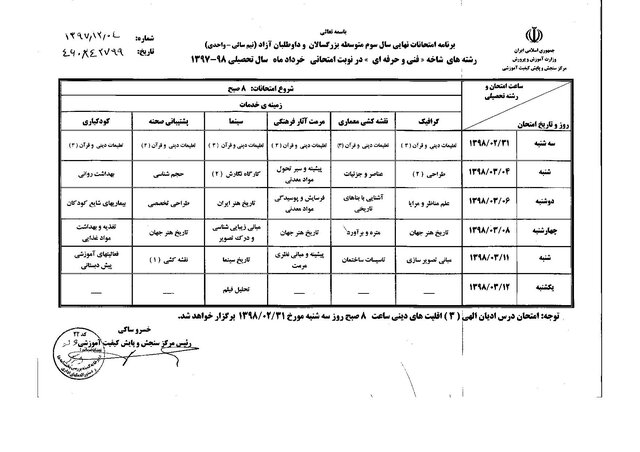 باسمه تعالی
جمهوری اسلامی ایران
وزارت آموزش و پرورش
مرکز سنجش و پایش کیفیت آموزشی
شماره:
تاریخ:
برنامه امتحانات نهایی سال سوم متوسطه بزرگسالان و داوطلبان آزاد (نیم سالی - واحدی)
رشته های شاخه « فنی و حرفه ای » در نوبت امتحانی خرداد ماه سال تحصیلی ۹۸-۱۳۹۷
ساعت امتحان و رشته تحصیلی
روز و تاریخ امتحان
شروع امتحانات: ۸ صبح
زمینه ی خدمات
گرافیک نقشه کشی معماری مرمت آثار فرهنگی سینما پشتیبانی صحنه کودکیاری
سه شنبه ۱۳۹۸/۰۲/۳۱ تعلیمات دینی و قرآن (۳) تعلیمات دینی و قرآن (۳) تعلیمات دینی و قرآن (۳) تعلیمات دینی و قرآن (۳) تعلیمات دینی و قرآن (۳) تعلیمات دینی و قرآن (۳)
شنبه ۱۳۹۸/۰۳/۰۴ طراحی (۲) عناصر و جزئیات پیشینه و سیر تحول مواد معدنی کارگاه نگارش (۲) حجم شناسی بهداشت روانی
دوشنبه ۱۳۹۸/۰۳/۰۶ علم مناظر و مرایا آشنایی با بناهای تاریخی فرسایش و پوسیدگی مواد معدنی تاریخ هنر ایران طراحی تخصصی بیماریهای شایع کودکان
چهارشنبه ۱۳۹۸/۰۳/۰۸ تاریخ هنر جهان متره و برآورد تاریخ هنر جهان مبانی زیبایی شناسی و درک تصویر تاریخ هنر جهان تغذیه و بهداشت مواد غذایی
شنبه ۱۳۹۸/۰۳/۱۱ مبانی تصویر سازی تاسیسات ساختمان پیشینه و مبانی نظری مرمت تاریخ سینما نقشه کشی (۱) فعالیتهای آموزشی پیش دبستانی
یکشنبه ۱۳۹۸/۰۳/۱۲ ــــ ــــ ــــ تحلیل فیلم ــــ ــــ
توجه: امتحان درس ادیان الهی (۳) اقلیت های دینی ساعت ۸ صبح روز سه شنبه مورخ ۱۳۹۸/۰۲/۳۱ برگزار خواهد شد.
خسرو ساکی
رئیس مرکز سنجش و پایش کیفیت آموزشی
کد ۲۲